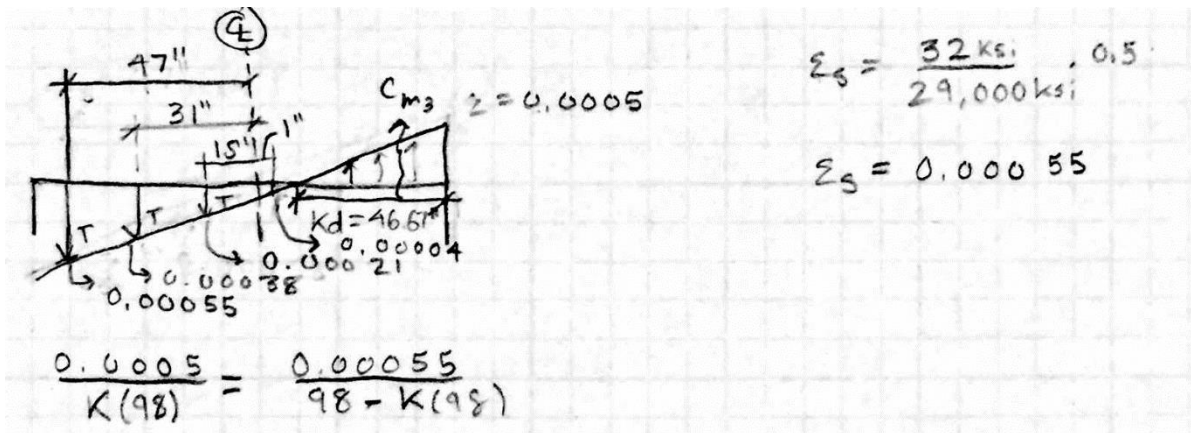 ℄
47"
31"
15"
1"
Cm3
ε = 0.0005
T
T
T
Kd = 46.67"
0.00004
0.00021
0.00038
0.00055
εs = 32 ksi / 29,000 ksi · 0.5
εs = 0.00055
0.0005 / K(98) = 0.00055 / 98 - K(98)